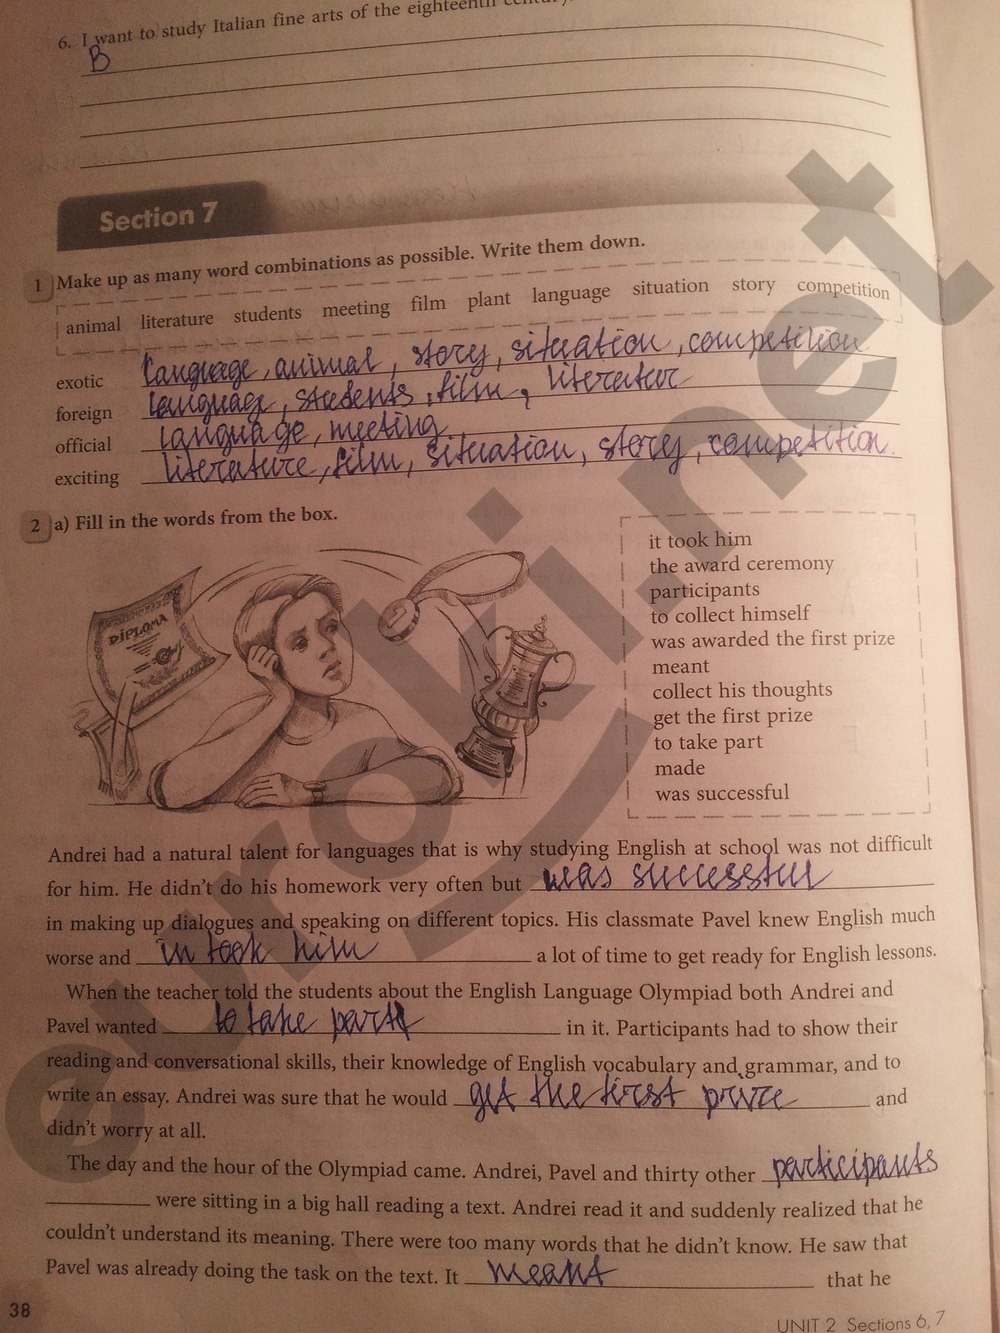 6. I want to study Italian fine arts of the eighteenth century.
B
Section 7
1 Make up as many word combinations as possible. Write them down.
animal literature students meeting film plant language situation story competition
exotic language, animal, story, situation, competition
foreign language, students, film, literatur
official language, meeting
exciting literature, film, situation, story, competition.
2 a) Fill in the words from the box.
DIPLOMA
it took him
the award ceremony
participants
to collect himself
was awarded the first prize
meant
collect his thoughts
get the first prize
to take part
made
was successful
Andrei had a natural talent for languages that is why studying English at school was not difficult
for him. He didn't do his homework very often but was successful
in making up dialogues and speaking on different topics. His classmate Pavel knew English much
worse and in took him a lot of time to get ready for English lessons.
When the teacher told the students about the English Language Olympiad both Andrei and
Pavel wanted to take part in it. Participants had to show their
reading and conversational skills, their knowledge of English vocabulary and grammar, and to
write an essay. Andrei was sure that he would get the first prize and
didn't worry at all.
The day and the hour of the Olympiad came. Andrei, Pavel and thirty other participants
were sitting in a big hall reading a text. Andrei read it and suddenly realized that he
couldn't understand its meaning. There were too many words that he didn't know. He saw that
Pavel was already doing the task on the text. It meant that he
38
UNIT 2 Sections 6, 7
euroki.net